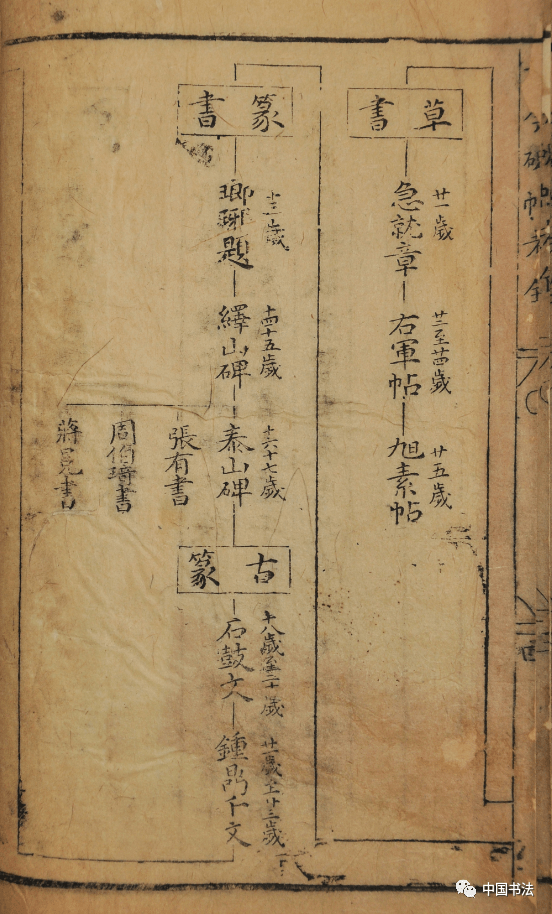 草書
廿一歲
急就章
廿二至廿四歲
右軍帖
廿五歲
旭素帖
篆書
十三歲
瑯琊題
十四十五歲
繹山碑
十六十七歲
泰山碑
張有書
周伯琦書
蔣冕書
古篆
十八歲至二十歲
石鼓文
廿一歲至廿三歲
鍾鼎千文
中国书法